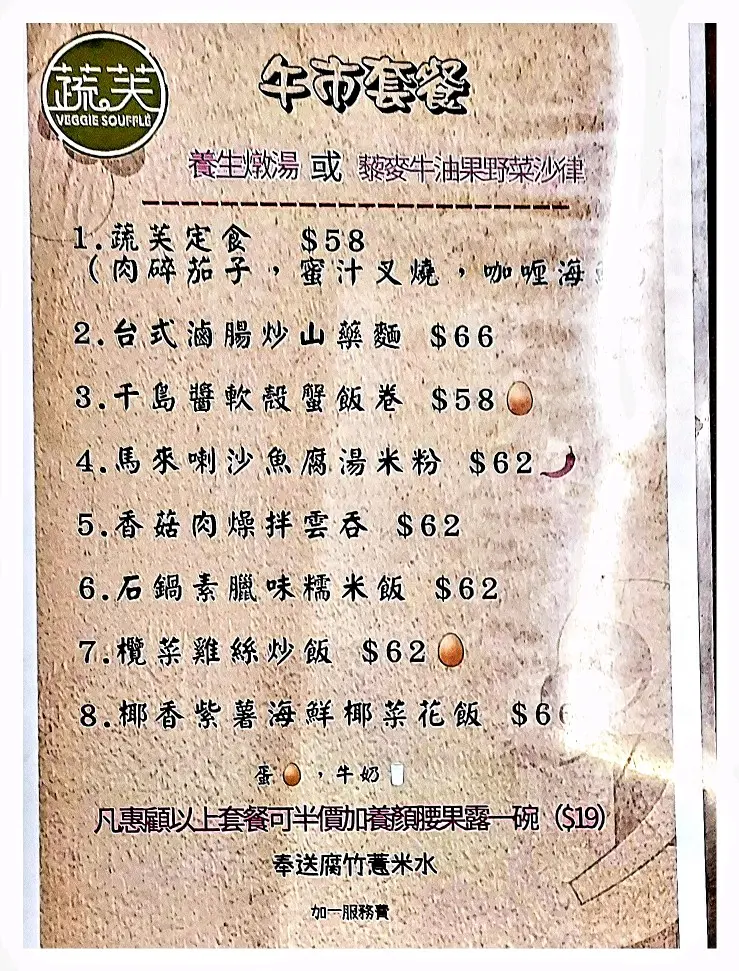 蔬芙
VEGGIE SOUFFLÉ
午市套餐
養生燉湯 或 藜麥牛油果野菜沙律
1.蔬芙定食 $58
(肉碎茄子，蜜汁叉燒，咖喱海
2.台式滷腸炒山藥麵 $66
3.千島醬軟殼蟹飯卷 $58
4.馬來喇沙魚腐湯米粉 $62
5.香菇肉燥拌雲吞 $62
6.石鍋素臘味糯米飯 $62
7.欖菜雞絲炒飯 $62
8.椰香紫薯海鮮椰菜花飯 $6
蛋，牛奶
凡惠顧以上套餐可半價加養顏腰果露一碗 ($19)
奉送腐竹薏米水
加一服務費